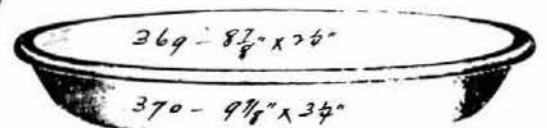 369 - 8 7/8" x 2 1/2"
370 - 9 7/8" x 3 1/4"